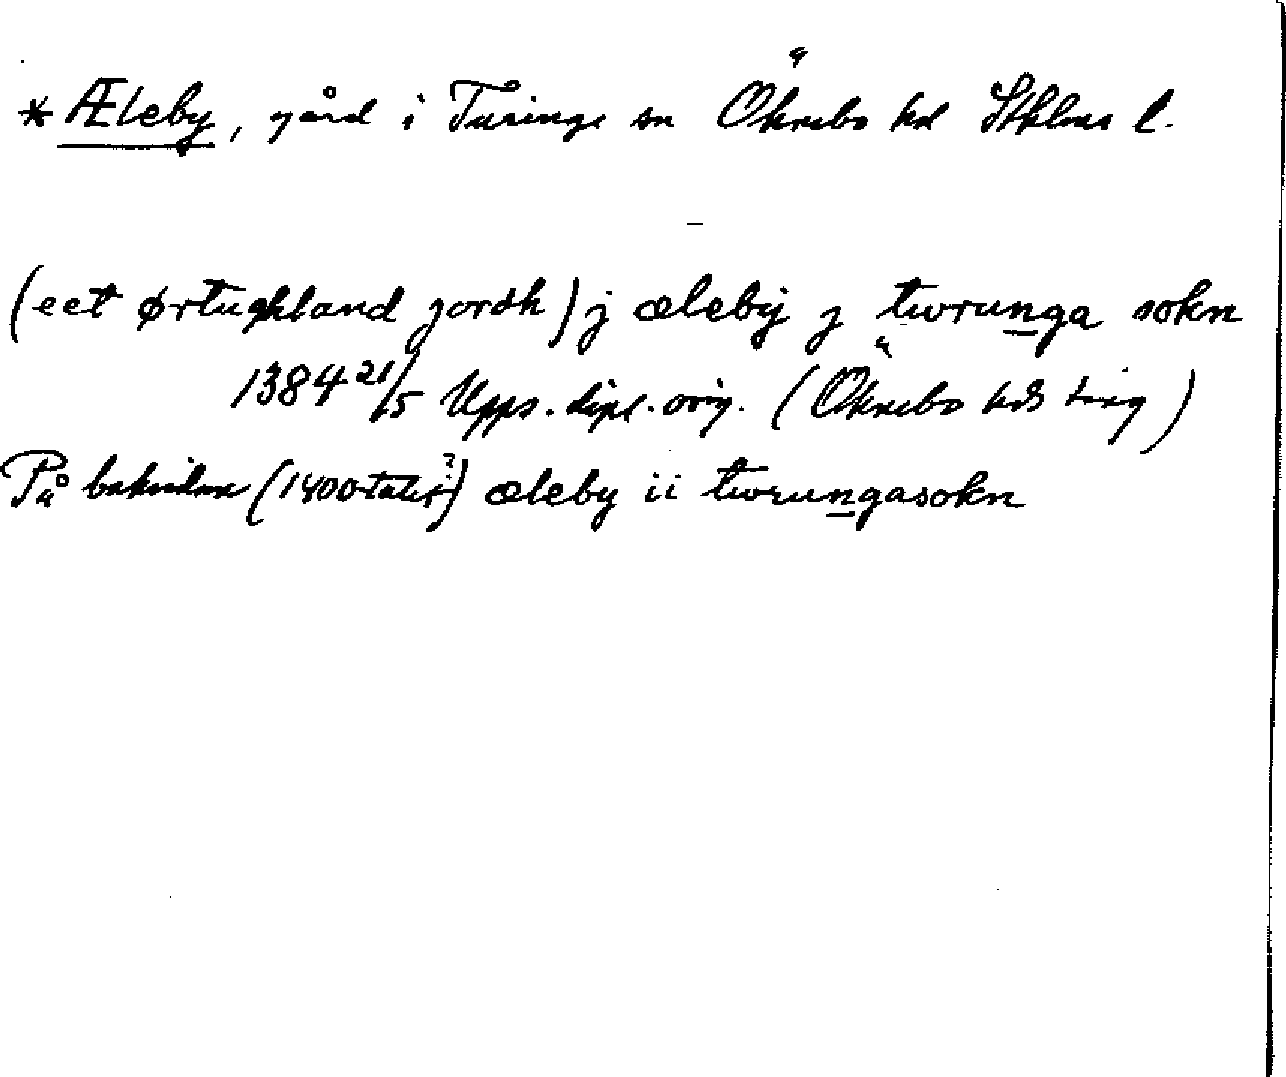 * Æleby, gård i Turinge sn Öknebo hd Sthlms l.
(eet ørtughland jordh) j æleby j twrunga sokn
1384 21/5 Upps. dipl. orig. (Öknebo hds ting)
På baksidan (1400-talet?) æleby ii twrungasokn